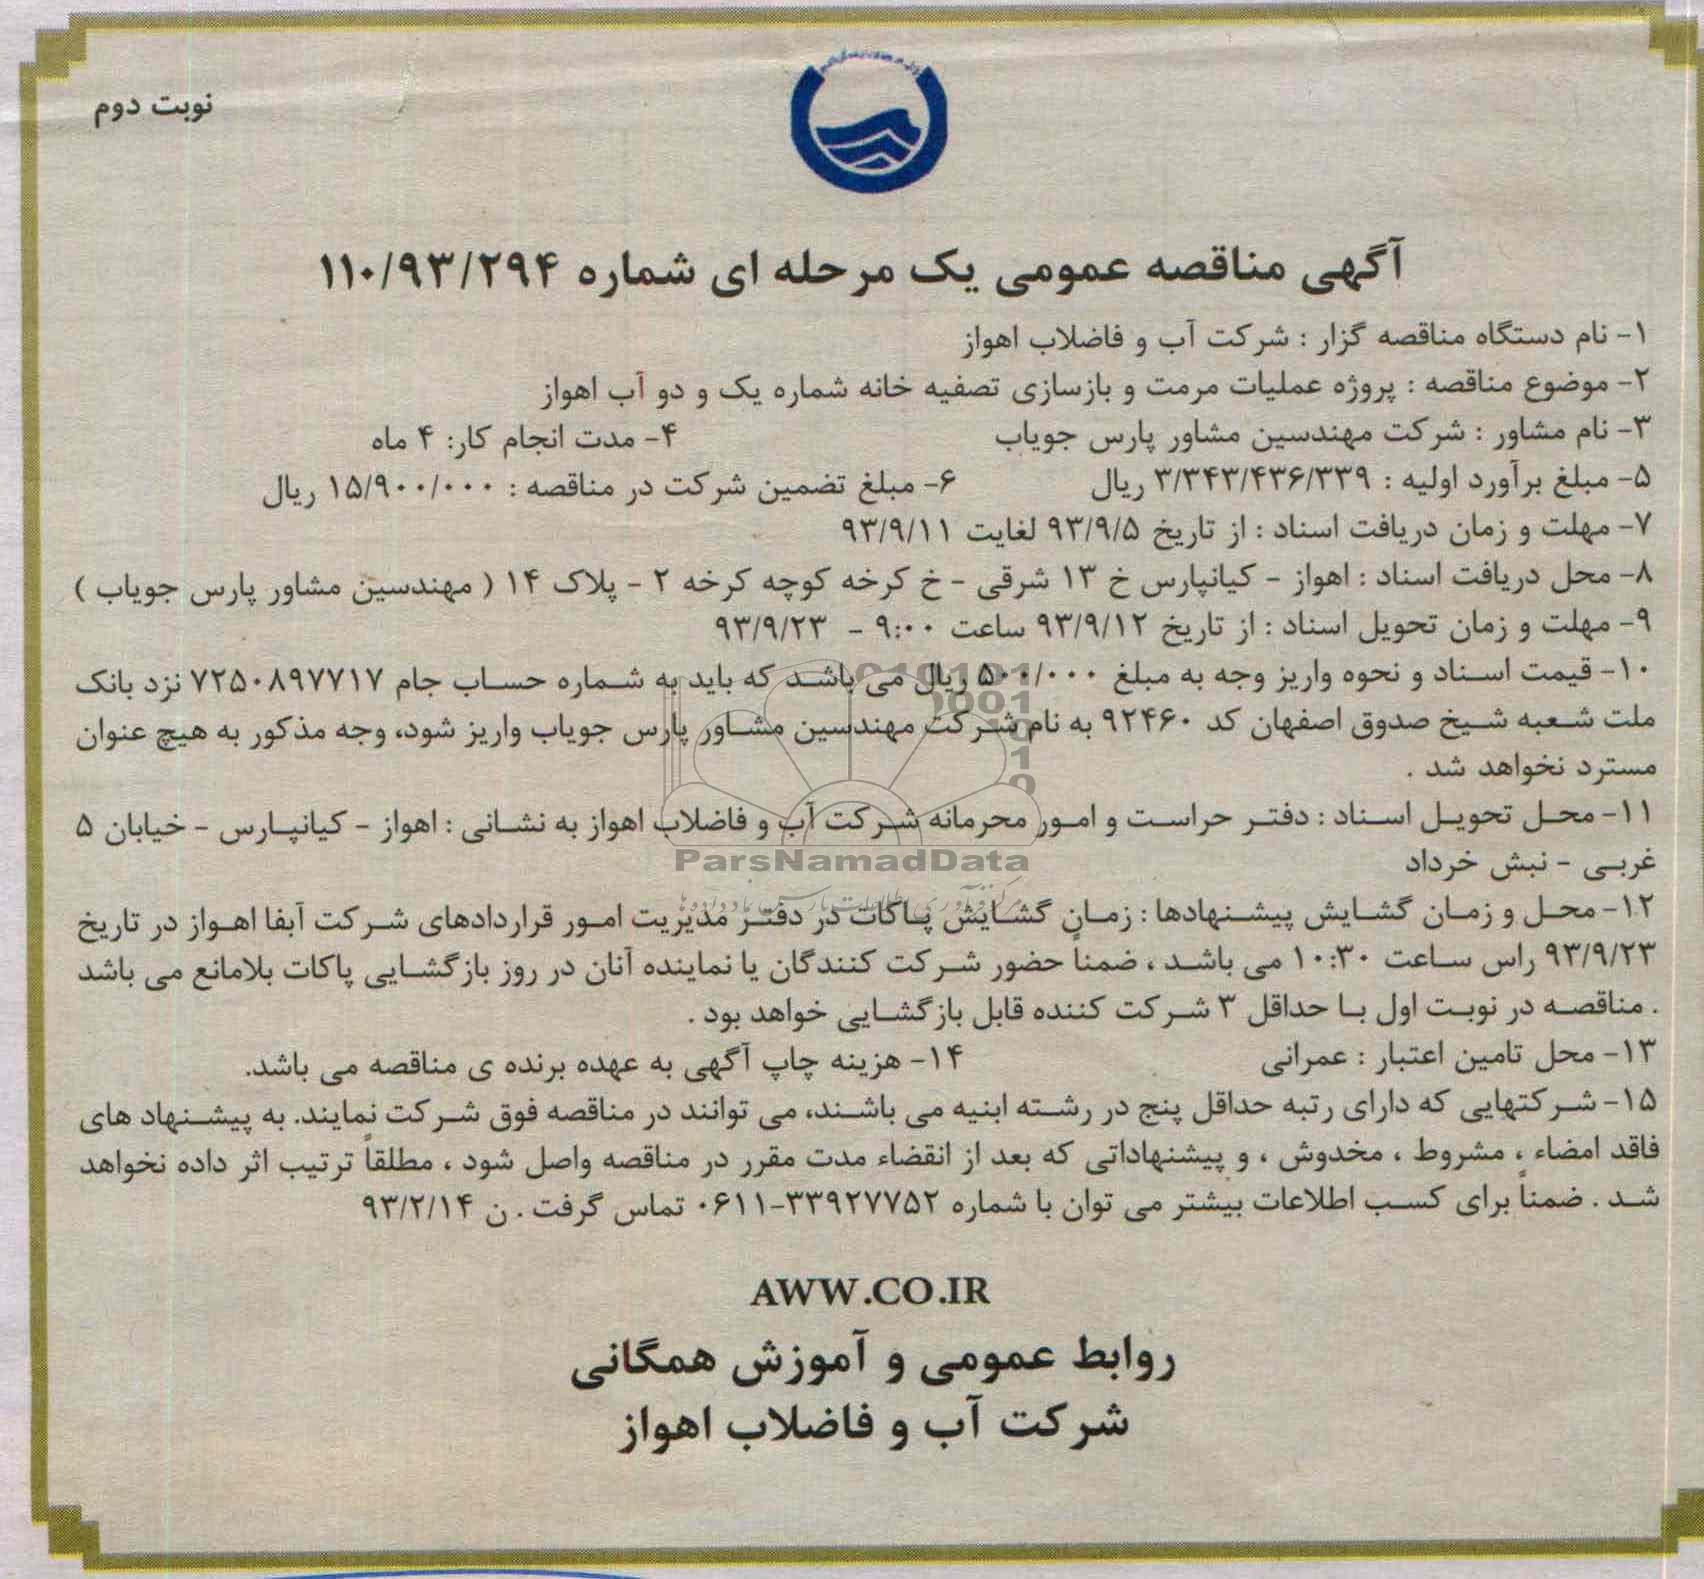 نوبت دوم
آگهی مناقصه عمومی یک مرحله ای شماره ۱۱۰/۹۳/۲۹۴
۱- نام دستگاه مناقصه گزار : شرکت آب و فاضلاب اهواز
۲- موضوع مناقصه : پروژه عملیات مرمت و بازسازی تصفیه خانه شماره یک و دو آب اهواز
۳- نام مشاور : شرکت مهندسین مشاور پارس جویاب ۴- مدت انجام کار: ۴ ماه
۵- مبلغ برآورد اولیه : ۳/۳۴۳/۴۳۶/۳۳۹ ریال ۶- مبلغ تضمین شرکت در مناقصه : ۱۵/۹۰۰/۰۰۰ ریال
۷- مهلت و زمان دریافت اسناد : از تاریخ ۹۳/۹/۵ لغایت ۹۳/۹/۱۱
۸- محل دریافت اسناد : اهواز - کیانپارس خ ۱۳ شرقی - خ کرخه کوچه کرخه ۲ - پلاک ۱۴ ( مهندسین مشاور پارس جویاب )
۹- مهلت و زمان تحویل اسناد : از تاریخ ۹۳/۹/۱۲ ساعت ۹:۰۰ - ۹۳/۹/۲۳
۱۰- قیمت اسناد و نحوه واریز وجه به مبلغ ۵۰۰/۰۰۰ ریال می باشد که باید به شماره حساب جام ۷۲۵۰۸۹۷۷۱۷ نزد بانک
ملت شعبه شیخ صدوق اصفهان کد ۹۲۴۶۰ به نام شرکت مهندسین مشاور پارس جویاب واریز شود، وجه مذکور به هیچ عنوان
مسترد نخواهد شد .
۱۱- محل تحویل اسناد : دفتر حراست و امور محرمانه شرکت آب و فاضلاب اهواز به نشانی : اهواز - کیانپارس - خیابان ۵
ParsNamadData
غربی - نبش خرداد
۱۲- محل و زمان گشایش پیشنهادها : زمان گشایش پاکات در دفتر مدیریت امور قراردادهای شرکت آبفا اهواز در تاریخ
۹۳/۹/۲۳ راس ساعت ۱۰:۳۰ می باشد ، ضمناً حضور شرکت کنندگان یا نماینده آنان در روز بازگشایی پاکات بلامانع می باشد
. مناقصه در نوبت اول با حداقل ۳ شرکت کننده قابل بازگشایی خواهد بود .
۱۳- محل تامین اعتبار : عمرانی ۱۴- هزینه چاپ آگهی به عهده برنده ی مناقصه می باشد.
۱۵- شرکتهایی که دارای رتبه حداقل پنج در رشته ابنیه می باشند، می توانند در مناقصه فوق شرکت نمایند. به پیشنهاد های
فاقد امضاء ، مشروط ، مخدوش ، و پیشنهاداتی که بعد از انقضاء مدت مقرر در مناقصه واصل شود ، مطلقاً ترتیب اثر داده نخواهد
شد . ضمناً برای کسب اطلاعات بیشتر می توان با شماره ۳۳۹۲۷۷۵۲-۰۶۱۱ تماس گرفت . ن ۹۳/۲/۱۴
AWW.CO.IR
روابط عمومی و آموزش همگانی
شرکت آب و فاضلاب اهواز